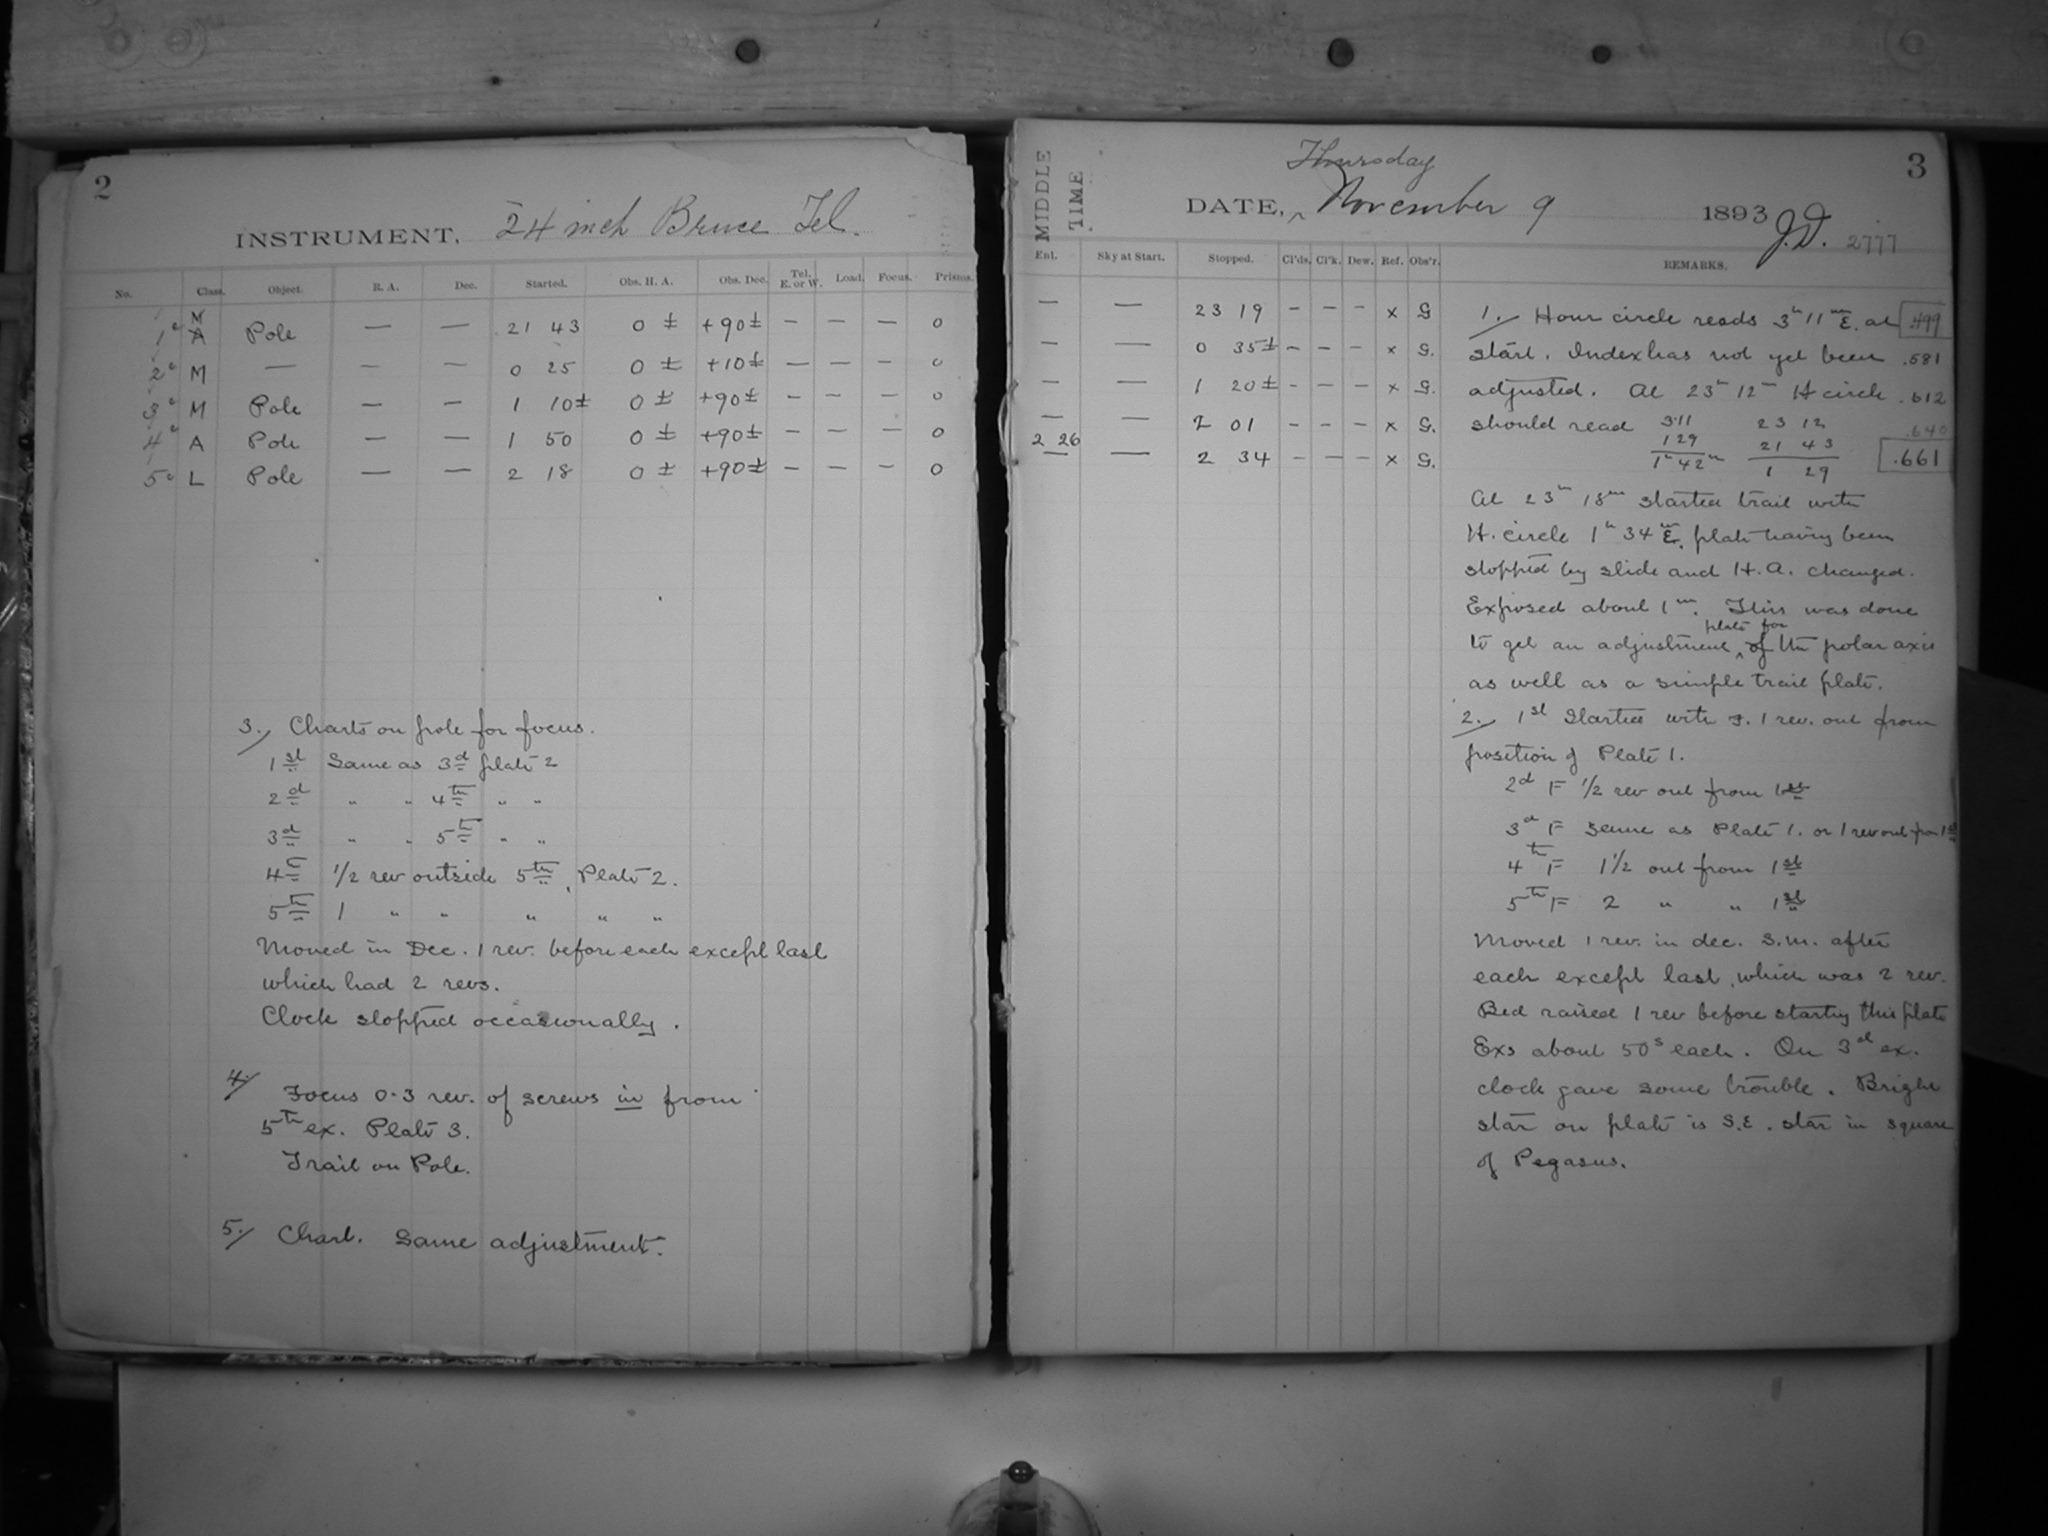 2
INSTRUMENT, 24 inch Bruce Tel.
No. Class. Object. R. A. Dec. Started. Obs. H. A. Obs. Dec. Tel. E. or W. Load. Focus. Prisms.
1 M A Pole — — 21 43 0 ± +90± — — — 0
2 M — — — 0 25 0 ± +10± — — — 0
3 M Pole — — 1 10± 0 ± +90± — — — 0
4 A Pole — — 1 50 0 ± +90± — — — 0
5 L Pole — — 2 18 0 ± +90± — — — 0
3. Charts on pole for focus.
1st Same as 3d plate 2
2d " " 4th " "
3d " " 5th " "
4th 1/2 rev outside 5th, Plate 2.
5th 1 " " " " "
Moved in Dec. 1 rev. before each except last
which had 2 revs.
Clock stopped occasionally.
4. Focus 0.3 rev. of screws in from
5th ex. Plate 3.
Trail on Pole.
5. Chart. Same adjustment.
3
MIDDLE TIME
Thursday
DATE, ^ November 9 1893 J.D. 2777
Ent. Sky at Start. Stopped. Cl'ds. Cl'k. Dew. Ref. Obs'r. REMARKS.
— — 23 19 — — — x G
— — 0 35± — — — x G.
— — 1 20± — — — x G.
— — 2 01 — — — x G.
2 26
— — 2 34 — — — x G.
1. Hour circle reads 3h 11m E. at .499
start. Index has not yet been .581
adjusted. At 23h 12m H circle .612
should read 3.11 23 12 .640
129 21 43
1h 42m 1 29 .661
At 23h 18m started trail with
H. circle 1h 34m E. plate having been
stopped by slide and H.A. changed.
Exposed about 1m. This was done
plate for
to get an adjustment ^ of the polar axis
as well as a simple trail plate.
2. 1st Started with F. 1 rev. out from
position of Plate 1.
2d F 1/2 rev out from 1st
3d F same as Plate 1. or 1 rev out from 1st
4th F 1 1/2 out from 1st
5th F 2 " " 1st
Moved 1 rev. in dec. S.M. after
each except last, which was 2 rev.
Bed raised 1 rev before starting this plate
Exs about 50s each. On 3d ex.
clock gave some trouble. Bright
star on plate is S.E. star in square
of Pegasus.